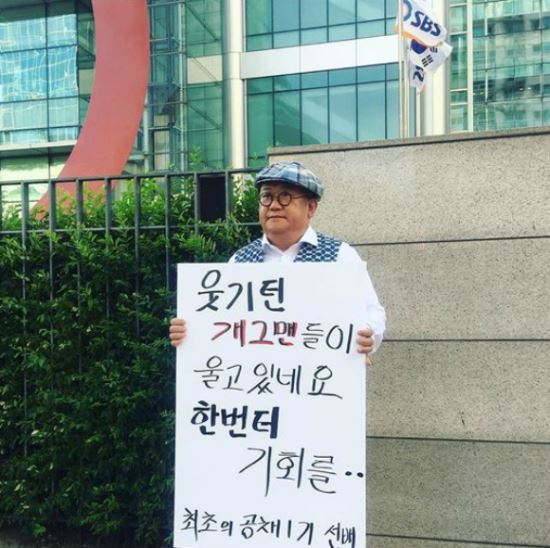 SBS
웃기턴
개그맨들이
울고 있네요
한번더
기회를..
최초의 공채1기 선배